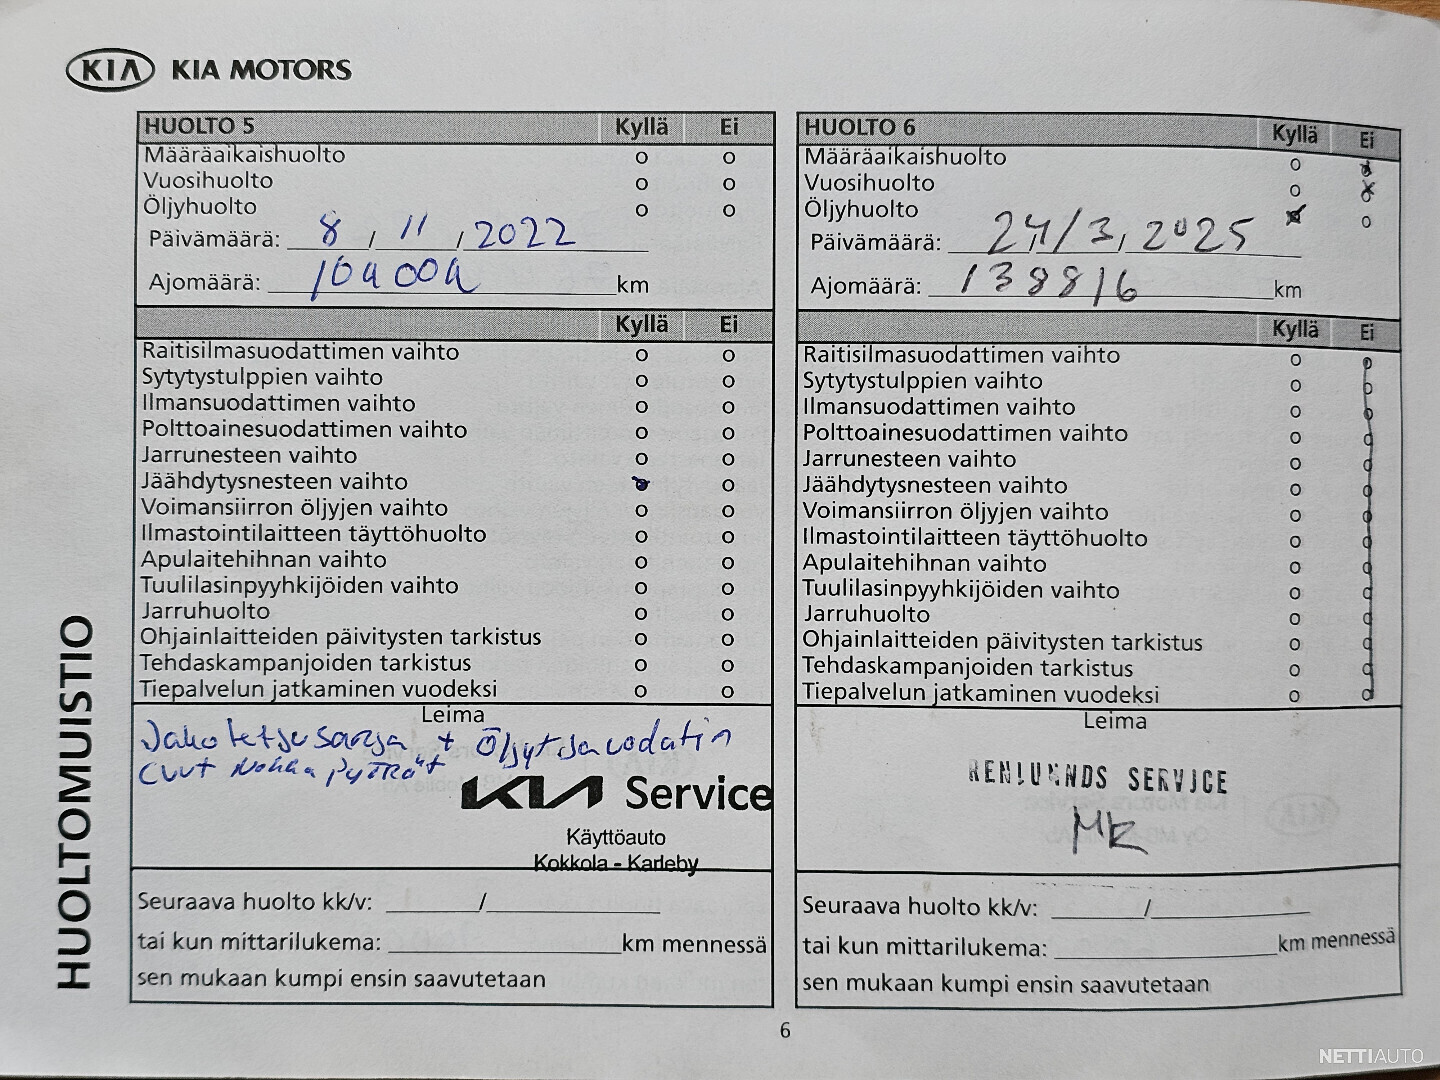 KIA KIA MOTORS
HUOLTOMUISTIO
HUOLTO 5 Kyllä Ei
Määräaikaishuolto o o
Vuosihuolto o o
Öljyhuolto o o
Päivämäärä: 8 / 11 / 2022
Ajomäärä: km
Kyllä Ei
Raitisilmasuodattimen vaihto o o
Sytytystulppien vaihto o o
Ilmansuodattimen vaihto o o
Polttoainesuodattimen vaihto o o
Jarrunesteen vaihto o o
Jäähdytysnesteen vaihto o o
Voimansiirron öljyjen vaihto o o
Ilmastointilaitteen täyttöhuolto o o
Apulaitehihnan vaihto o o
Tuulilasinpyyhkijöiden vaihto o o
Jarruhuolto o o
Ohjainlaitteiden päivitysten tarkistus o o
Tehdaskampanjoiden tarkistus o o
Tiepalvelun jatkaminen vuodeksi o o
Leima
Jakoketjusarja + Öljyt ja suodatin
KIA Service
Käyttöauto
Kokkola - Karleby
Seuraava huolto kk/v: /
tai kun mittarilukema: km mennessä
sen mukaan kumpi ensin saavutetaan
HUOLTO 6 Kyllä Ei
Määräaikaishuolto o o
Vuosihuolto o o
Öljyhuolto o o
Päivämäärä: 24/3, 2025
Ajomäärä: 138816 km
Kyllä Ei
Raitisilmasuodattimen vaihto o o
Sytytystulppien vaihto o o
Ilmansuodattimen vaihto o o
Polttoainesuodattimen vaihto o o
Jarrunesteen vaihto o o
Jäähdytysnesteen vaihto o o
Voimansiirron öljyjen vaihto o o
Ilmastointilaitteen täyttöhuolto o o
Apulaitehihnan vaihto o o
Tuulilasinpyyhkijöiden vaihto o o
Jarruhuolto o o
Ohjainlaitteiden päivitysten tarkistus o o
Tehdaskampanjoiden tarkistus o o
Tiepalvelun jatkaminen vuodeksi o o
Leima
SERVICE
MK
Seuraava huolto kk/v: /
tai kun mittarilukema: km mennessä
sen mukaan kumpi ensin saavutetaan
6
NETTIAUTO